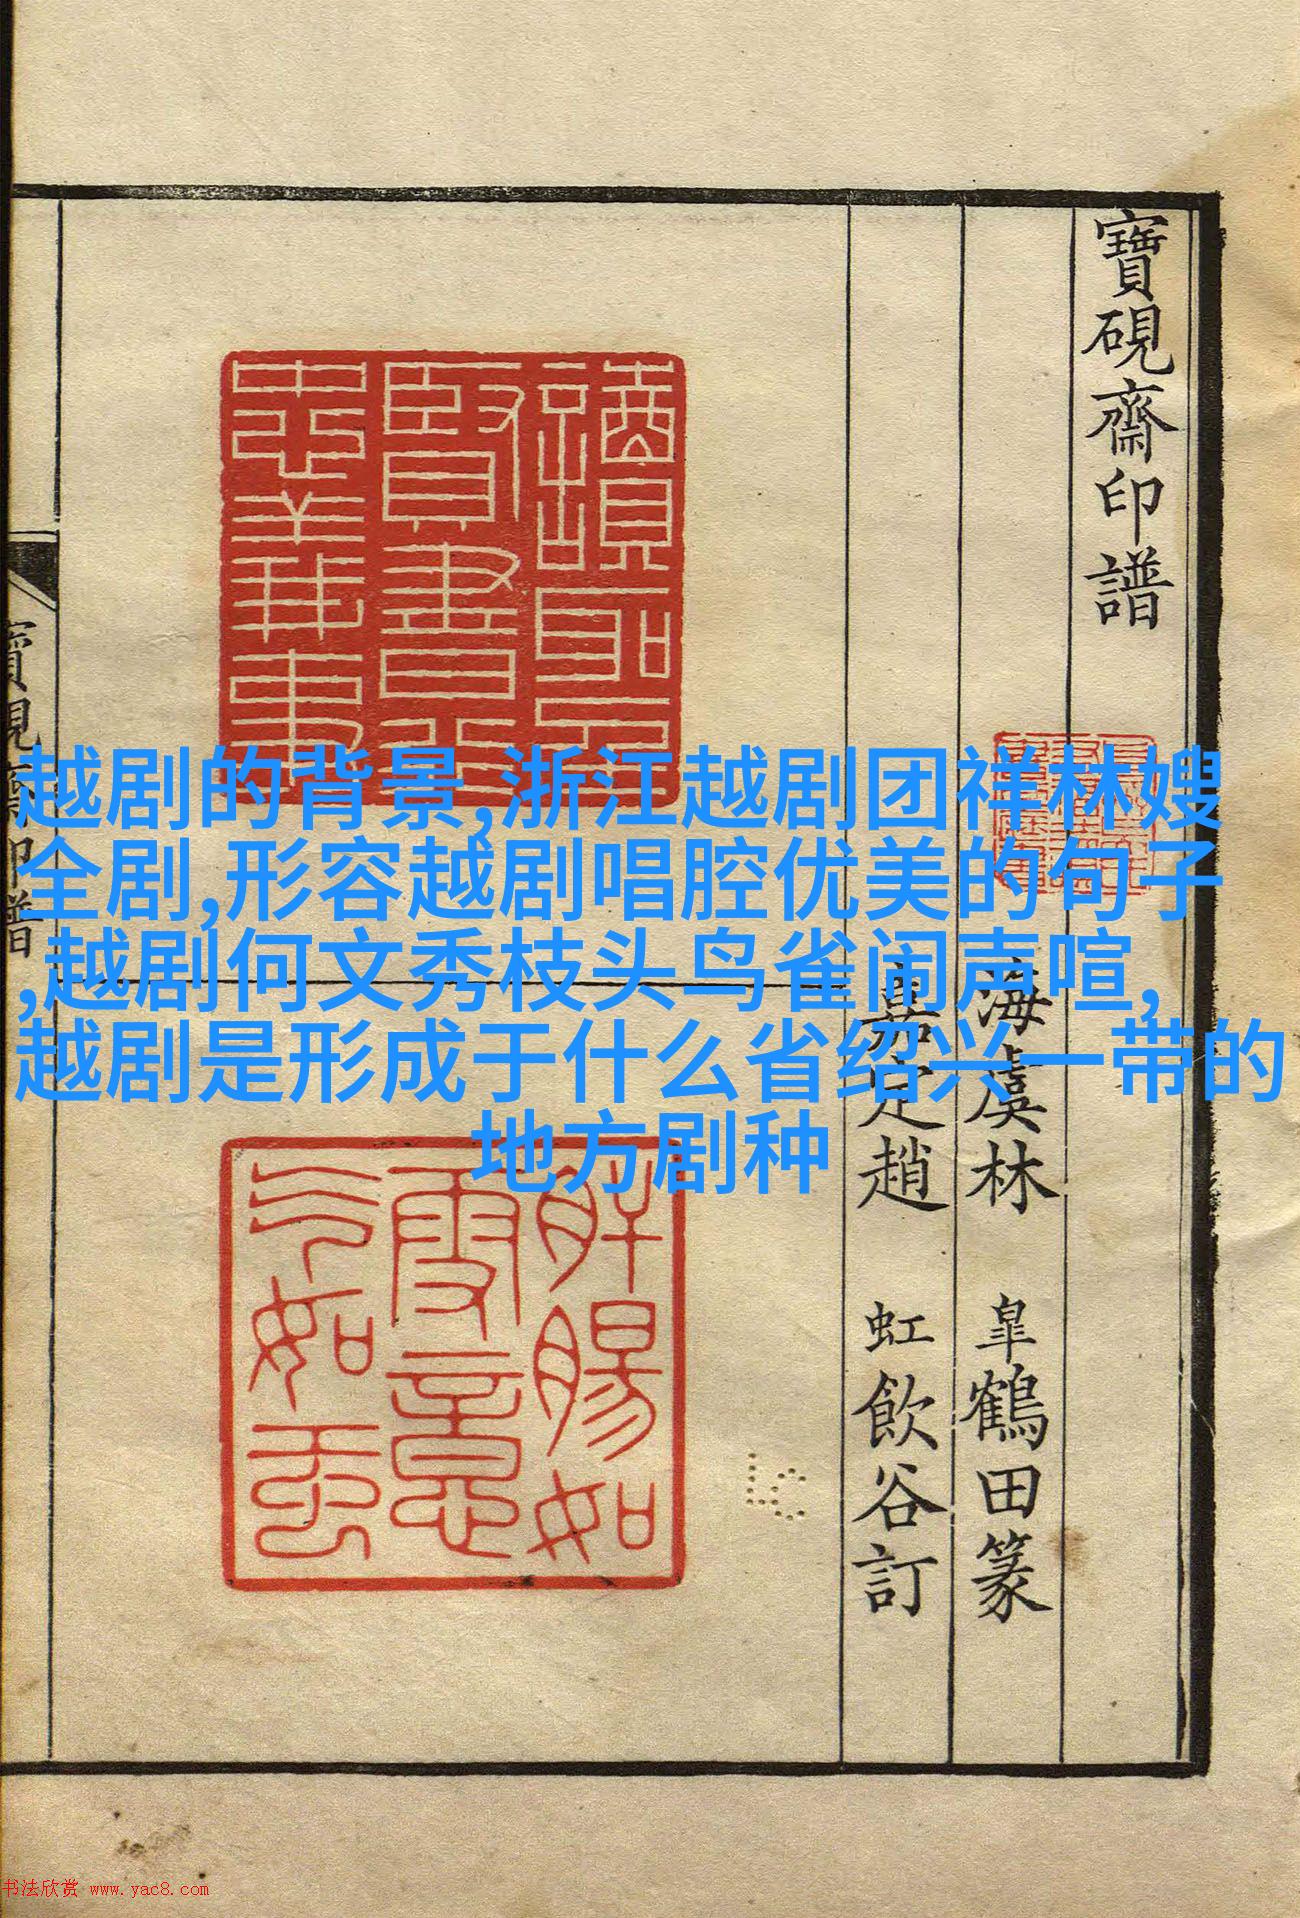 寶硯齋印譜
海虞林 皐鶴田篆
嘉定趙 虹飲谷訂
讀聖
賢書行
忠義事
肝腸如
雪意
氣如雲
寶硯齋印譜
越剧的背景,浙江越剧团祥林嫂
全剧,形容越剧唱腔优美的句子
,越剧何文秀枝头鸟雀闹声喧,
越剧是形成于什么省绍兴一带的
地方剧种
书法欣赏 www.yac8.com